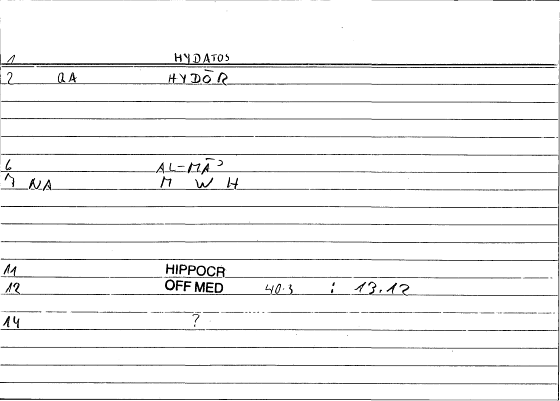 1 HYDATOS
2 QA HYDŌR
6 AL-MĀʾ
7 NA M W H
11 HIPPOCR
12 OFF MED 40.3 : 13.12
14 ?